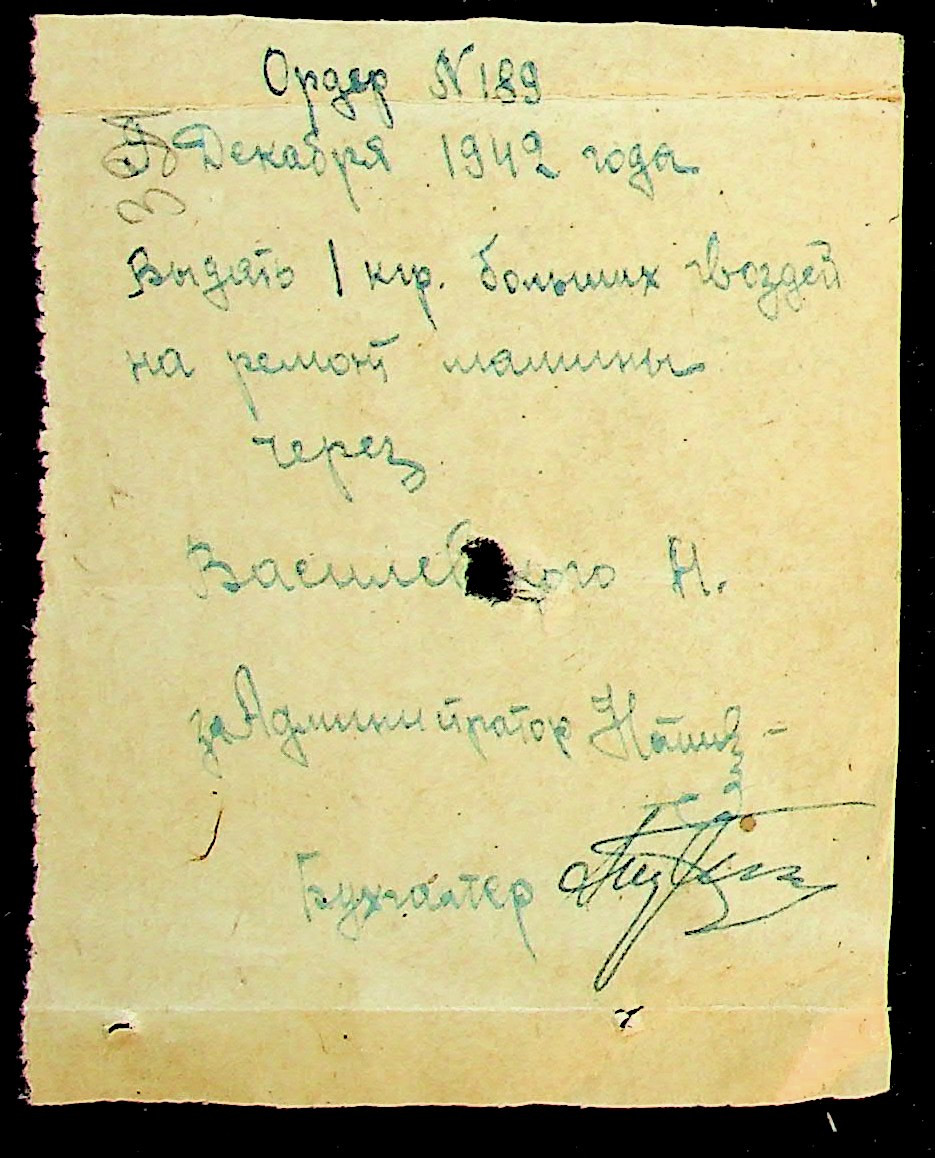 Ордер N 189
Декабря 1942 года
Выдать 1 кгр. больших гвоздей
на ремонт машины
через
Н.
за Администратор
Бухгалтер